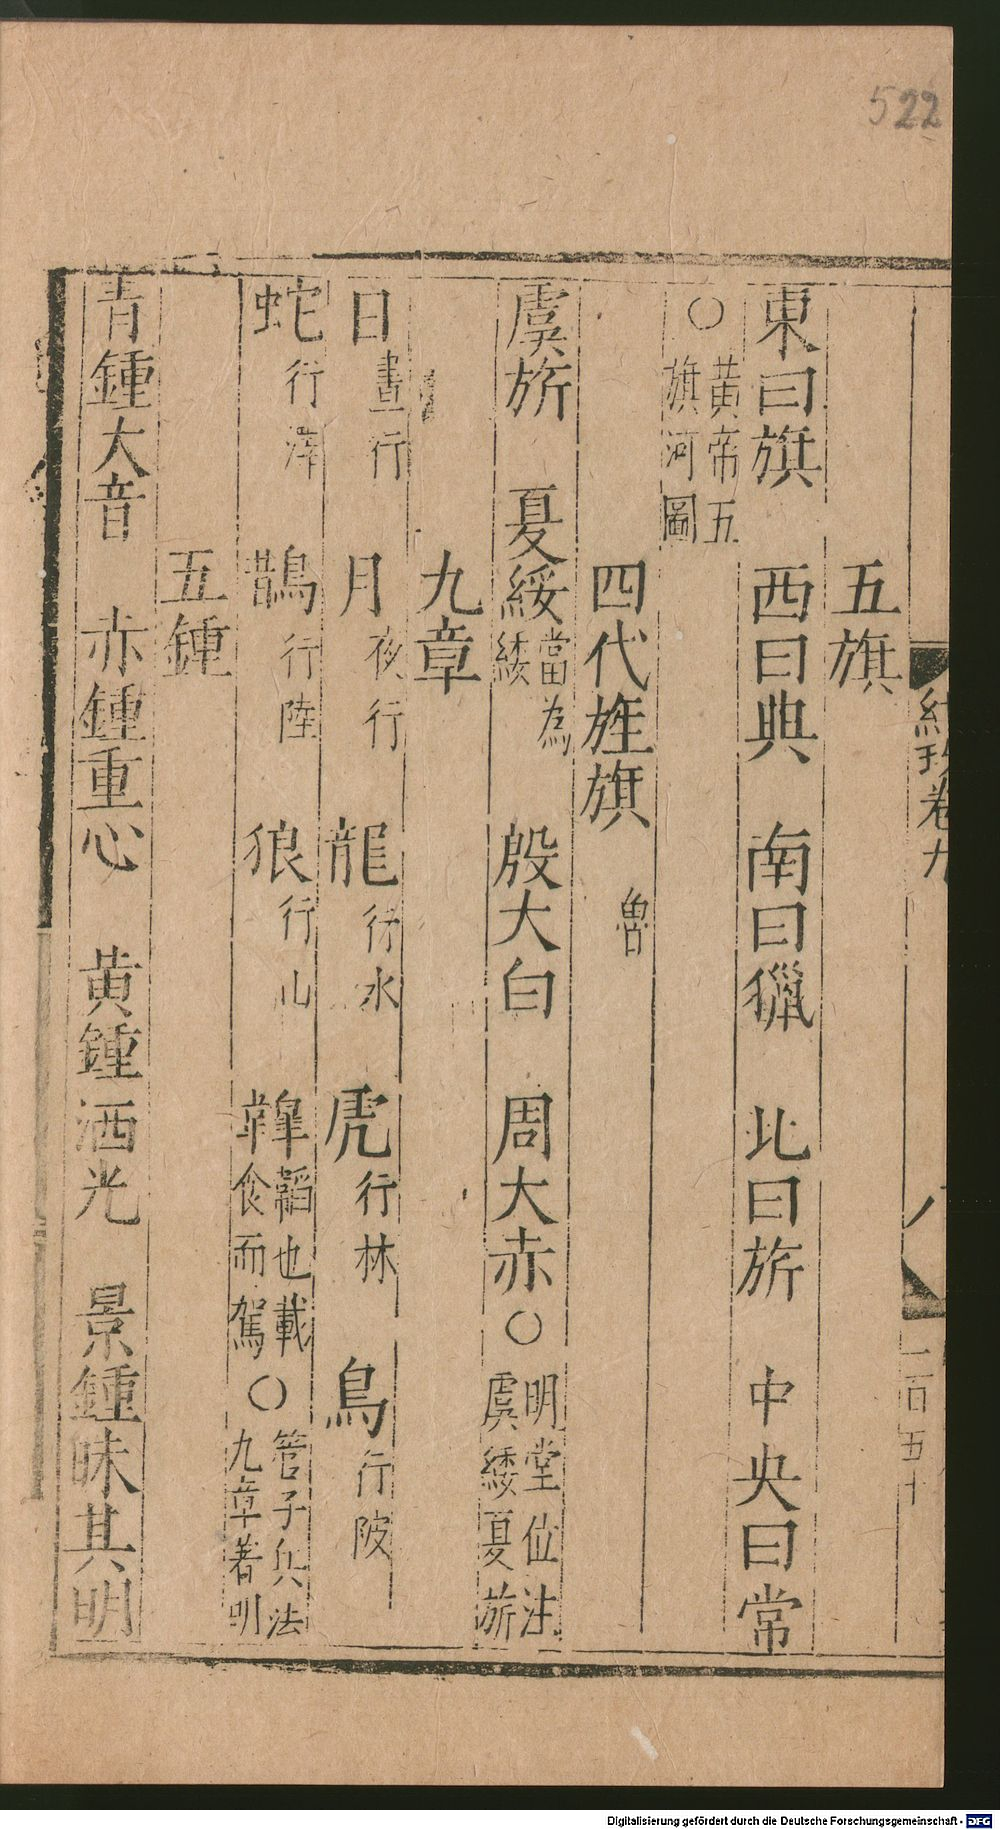 522
紺珠卷九
二百五十
五旗
東曰旗 西曰典 南曰獵 北曰旂 中央曰常
○黃帝五旗河圖
四代旌旗 魯
虞旂 夏綏當為緌 殷大白 周大赤○明堂位注虞緌夏旂
九章
日晝行 月夜行 龍行水 虎行林 鳥行陂
蛇行澤 鵲行陸 狼行山 韟韜也載食而駕○管子兵法九章著明
五鍾
青鍾大音 赤鍾重心 黃鍾洒光 景鍾昧其明
Digitalisierung gefördert durch die Deutsche Forschungsgemeinschaft - DFG